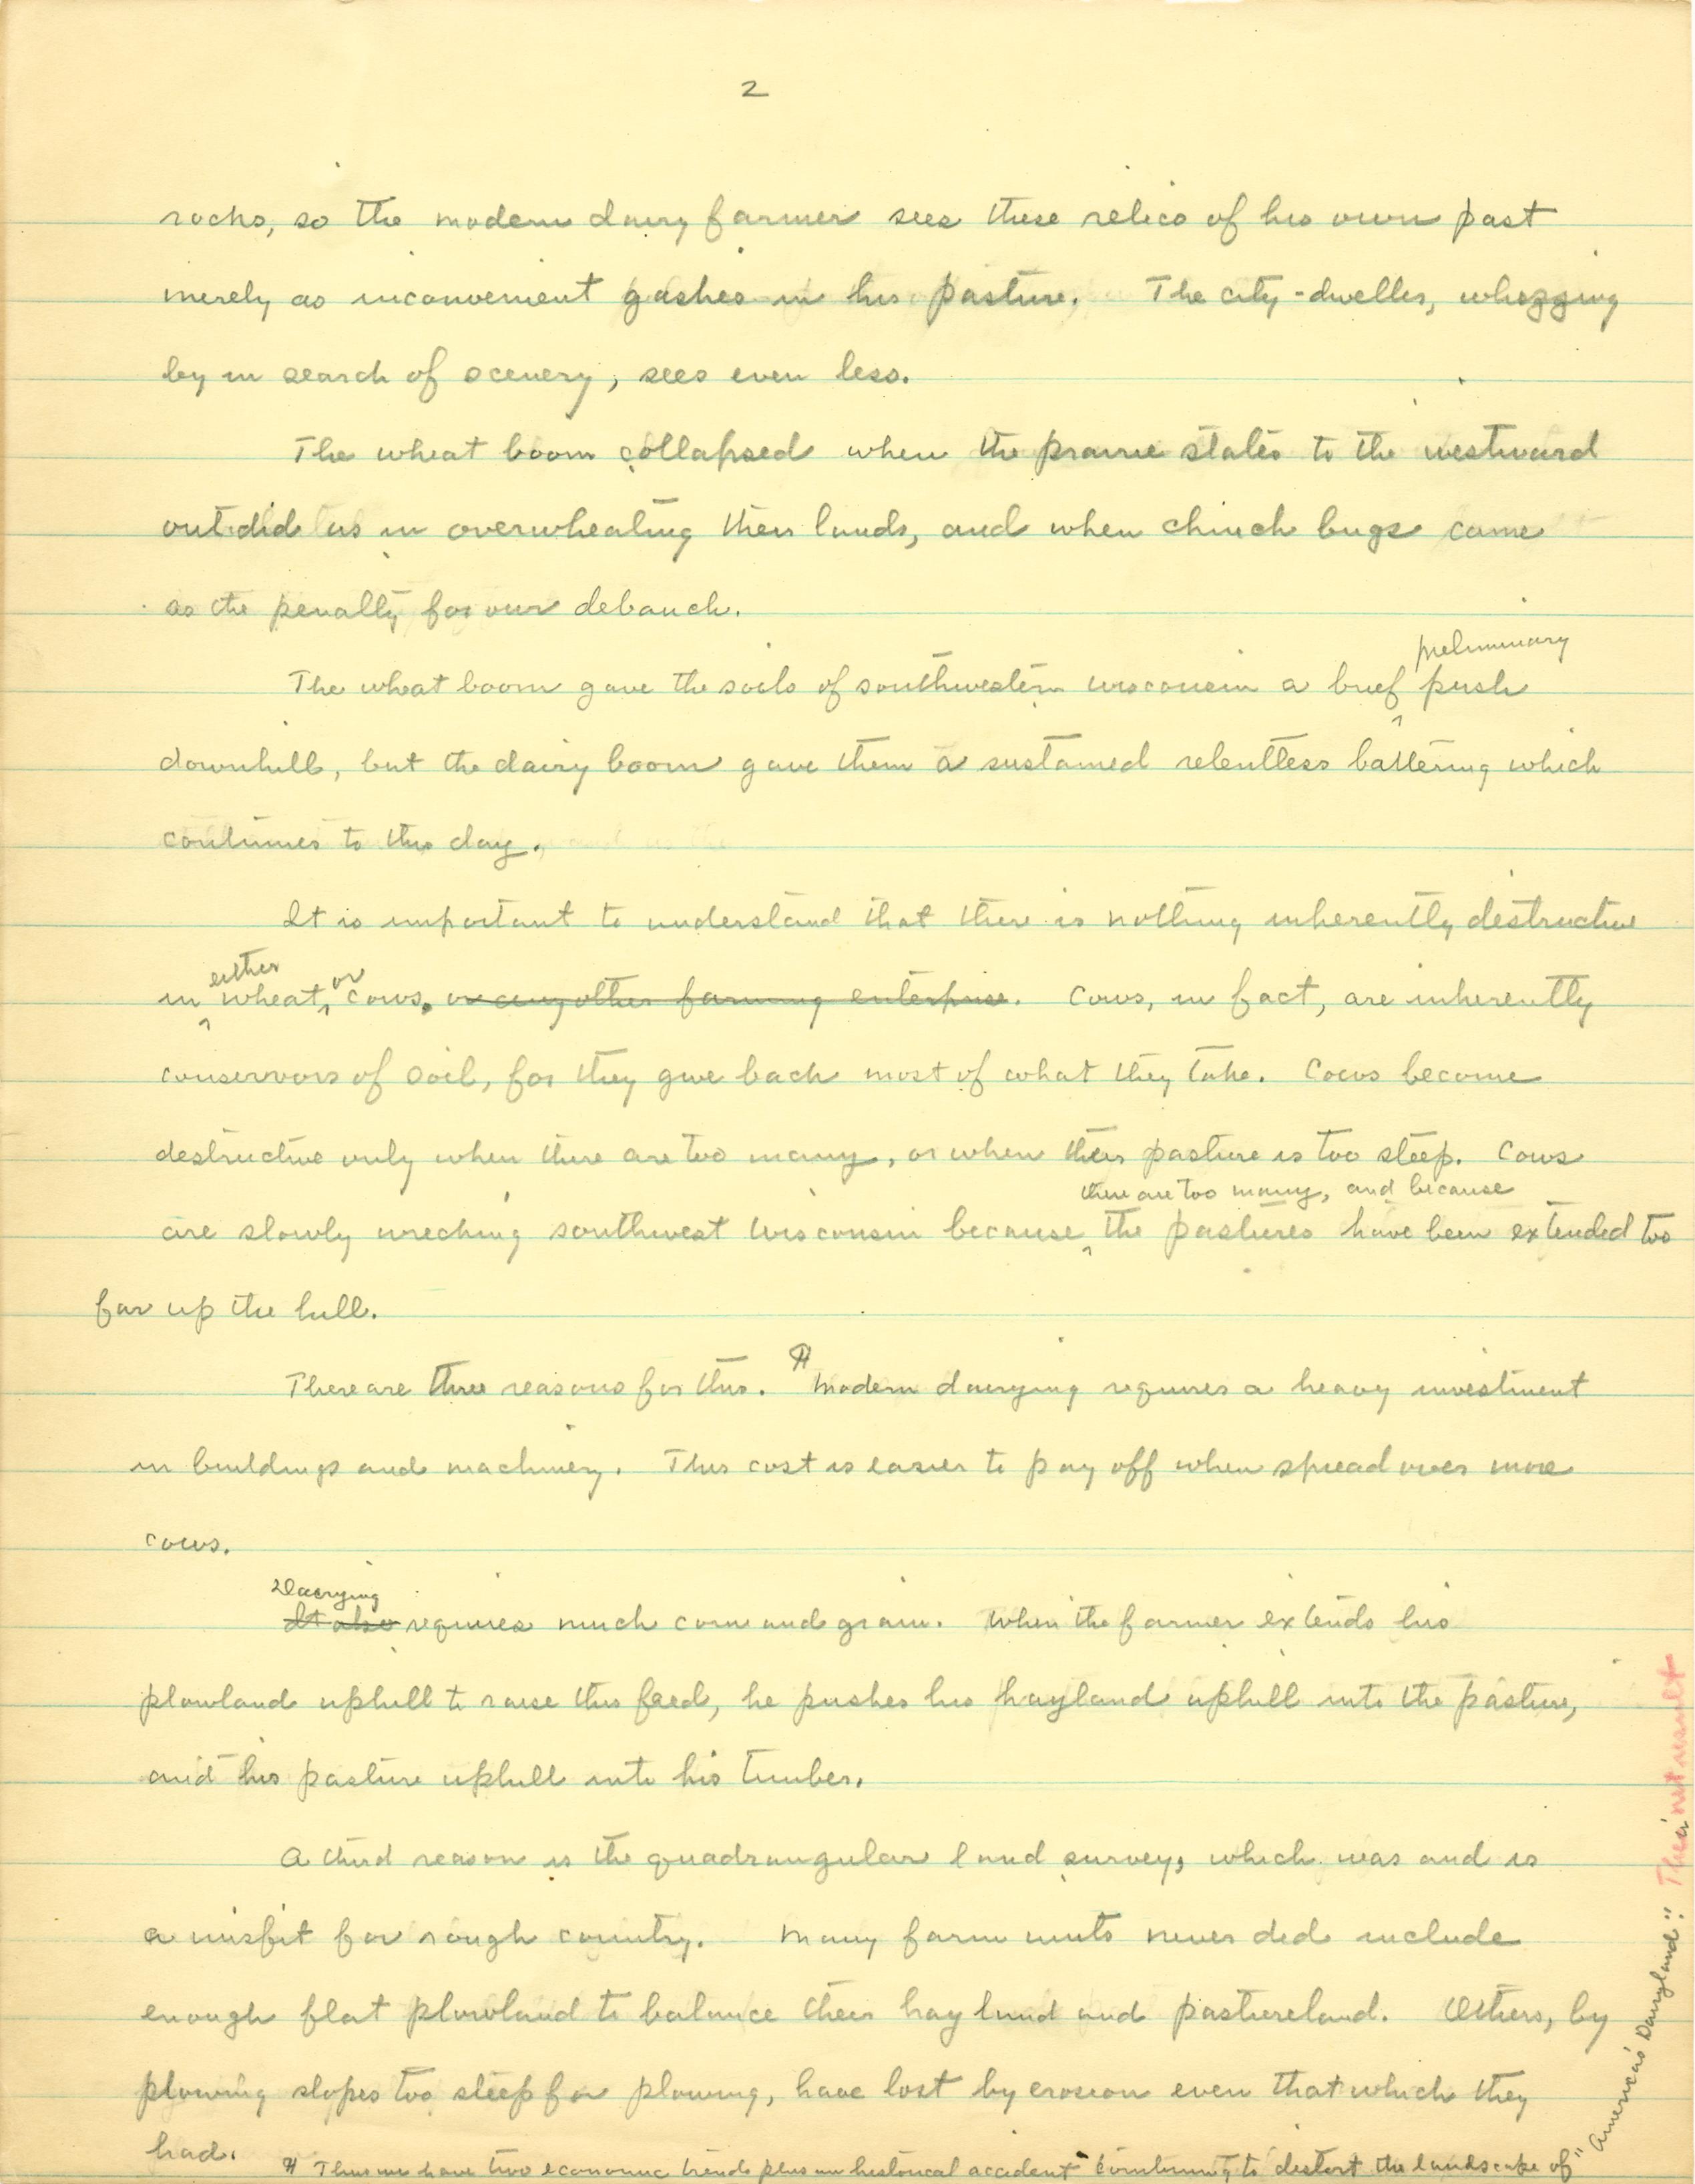 2
rocks, so the modern dairy farmer sees these relics of his own past
merely as inconvenient gashes in his pasture. The city-dweller, whizzing
by in search of scenery, sees even less.
The wheat boom collapsed when the prairie states to the westward
outdid us in overwheating their lands, and when chinch bugs came
as the penalty for our debauch.
preliminary
The wheat boom gave the soils of southwestern Wisconsin a brief ^ push
downhill, but the dairy boom gave them a sustained relentless battering which
continues to this day.
It is important to understand that there is nothing inherently destructive
either or
in ^ wheat, ^ cows. or any other farming enterprise. Cows, in fact, are inherently
conservors of soil, for they give back most of what they take. Cows become
destructive only when there are too many, or when their pasture is too steep. Cows
there are too many, and because
are slowly wrecking southwest Wisconsin because ^ the pastures have been extended too
far up the hill.
There are three reasons for this. ¶ Modern dairying requires a heavy investment
in buildings and machinery. This cost is easier to pay off when spread over more
cows.
Dairying
It also requires much corn and grain. When the farmer extends his
plowland uphill to raise this feed, he pushes his hayland uphill into the pasture,
and his pasture uphill into his timber.
A third reason is the quadrangular land survey, which was and is
a misfit for rough country. Many farm units never did include
enough flat plowland to balance their hayland and pastureland. Others, by
plowing slopes too steep for plowing, have lost by erosion even that which they
had.
¶ Thus we have two economic trends plus an historical accident combining to distort the landscape of
"America's Dairyland". The net result